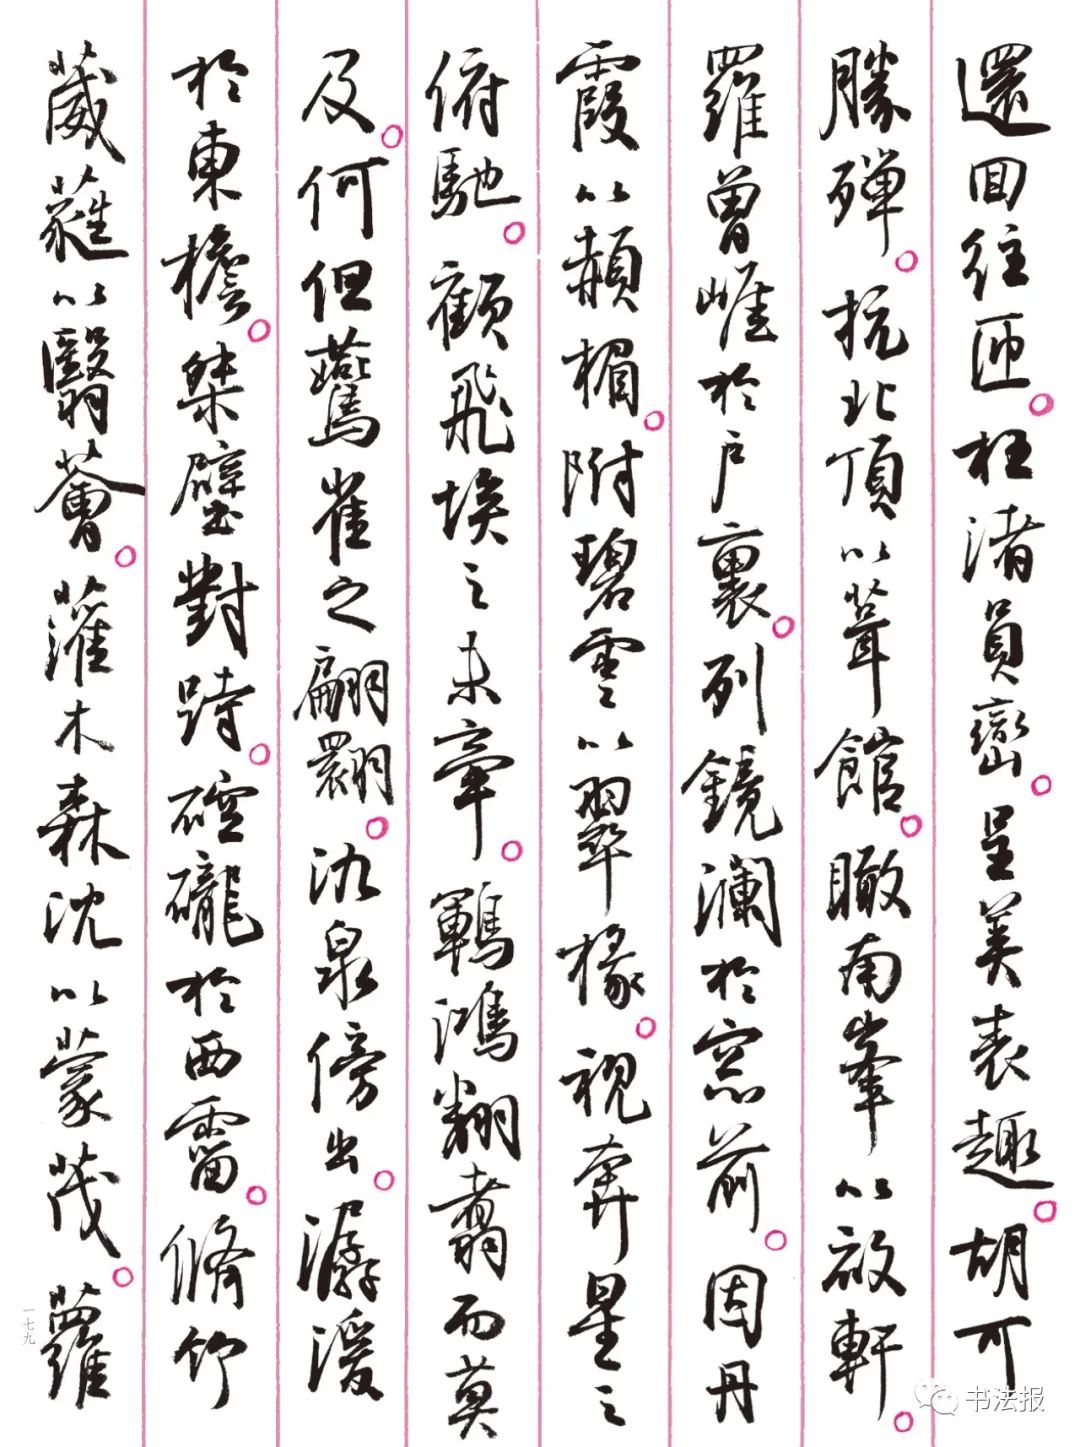 還回往匝。枉渚員巒。呈美表趣。胡可
勝殫。抗北頂以葺館。瞰南峯以啟軒。
羅曾崖於戶裏。列鏡瀾於窓前。因丹
霞以赬楣。附碧雲以翠椽。視奔星之
俯馳。顧飛埃之未牽。鵾鴻翻翥而莫
及。何但鷰雀之翩翾。氿泉傍出。潺湲
於東檐。桀壁對跱。硿礲於西霤。脩竹
葳蕤以翳薈。灌木森沈以蒙茂。蘿
一七九
书法报